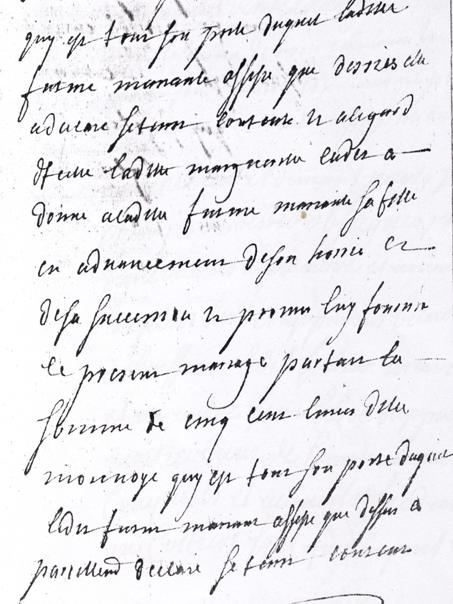 quy est tout son porté duquel ladite
future mariante assiste que dessus
a declare se tenir contente et a legard
ladite marguerite a
donne a ladite future mariante sa fille
en advancement de son hoirie et
de sa succession et promis luy fournir
le present mariage parfait la
somme de cinq cent livres dite
monnoye quy est tout son porté duquel
ledit futur mariant assiste que dessus a
pareillemt declare se tenir content